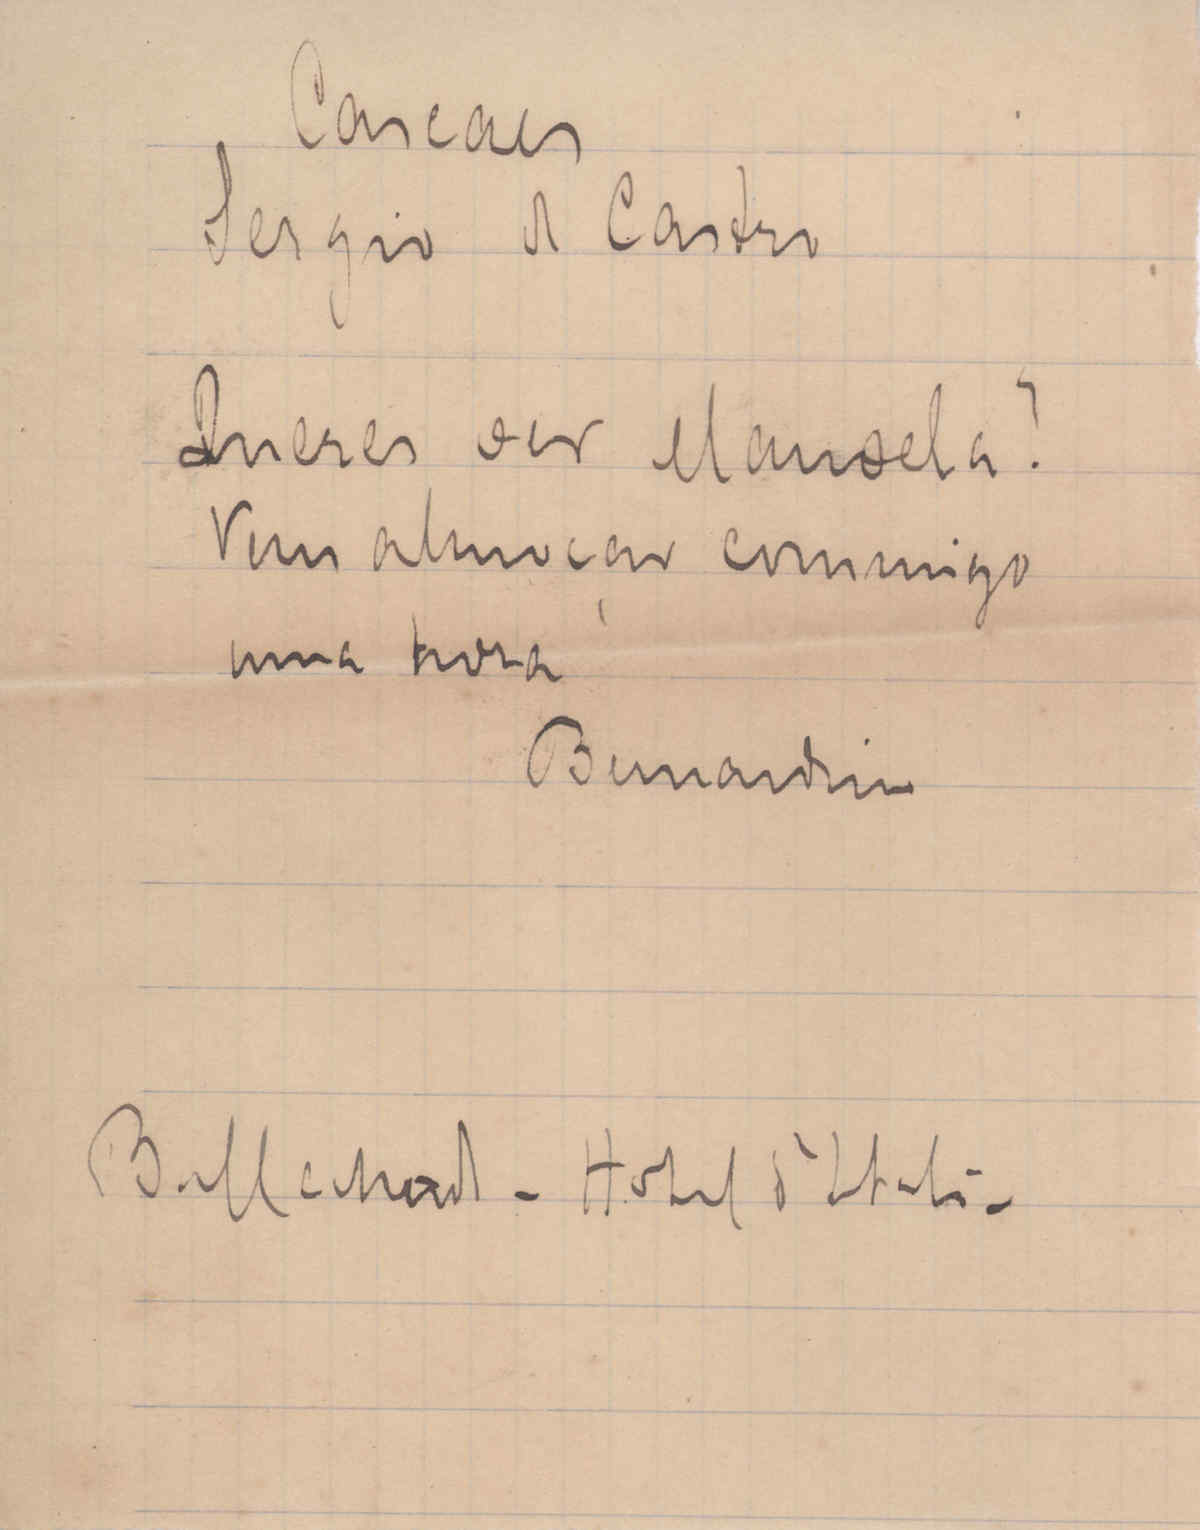 Cascaes
Sergio de Castro
Queres ver Manoela?
Vem almoçar commigo
uma hora
Bernardin
- Hotel d'Italia -